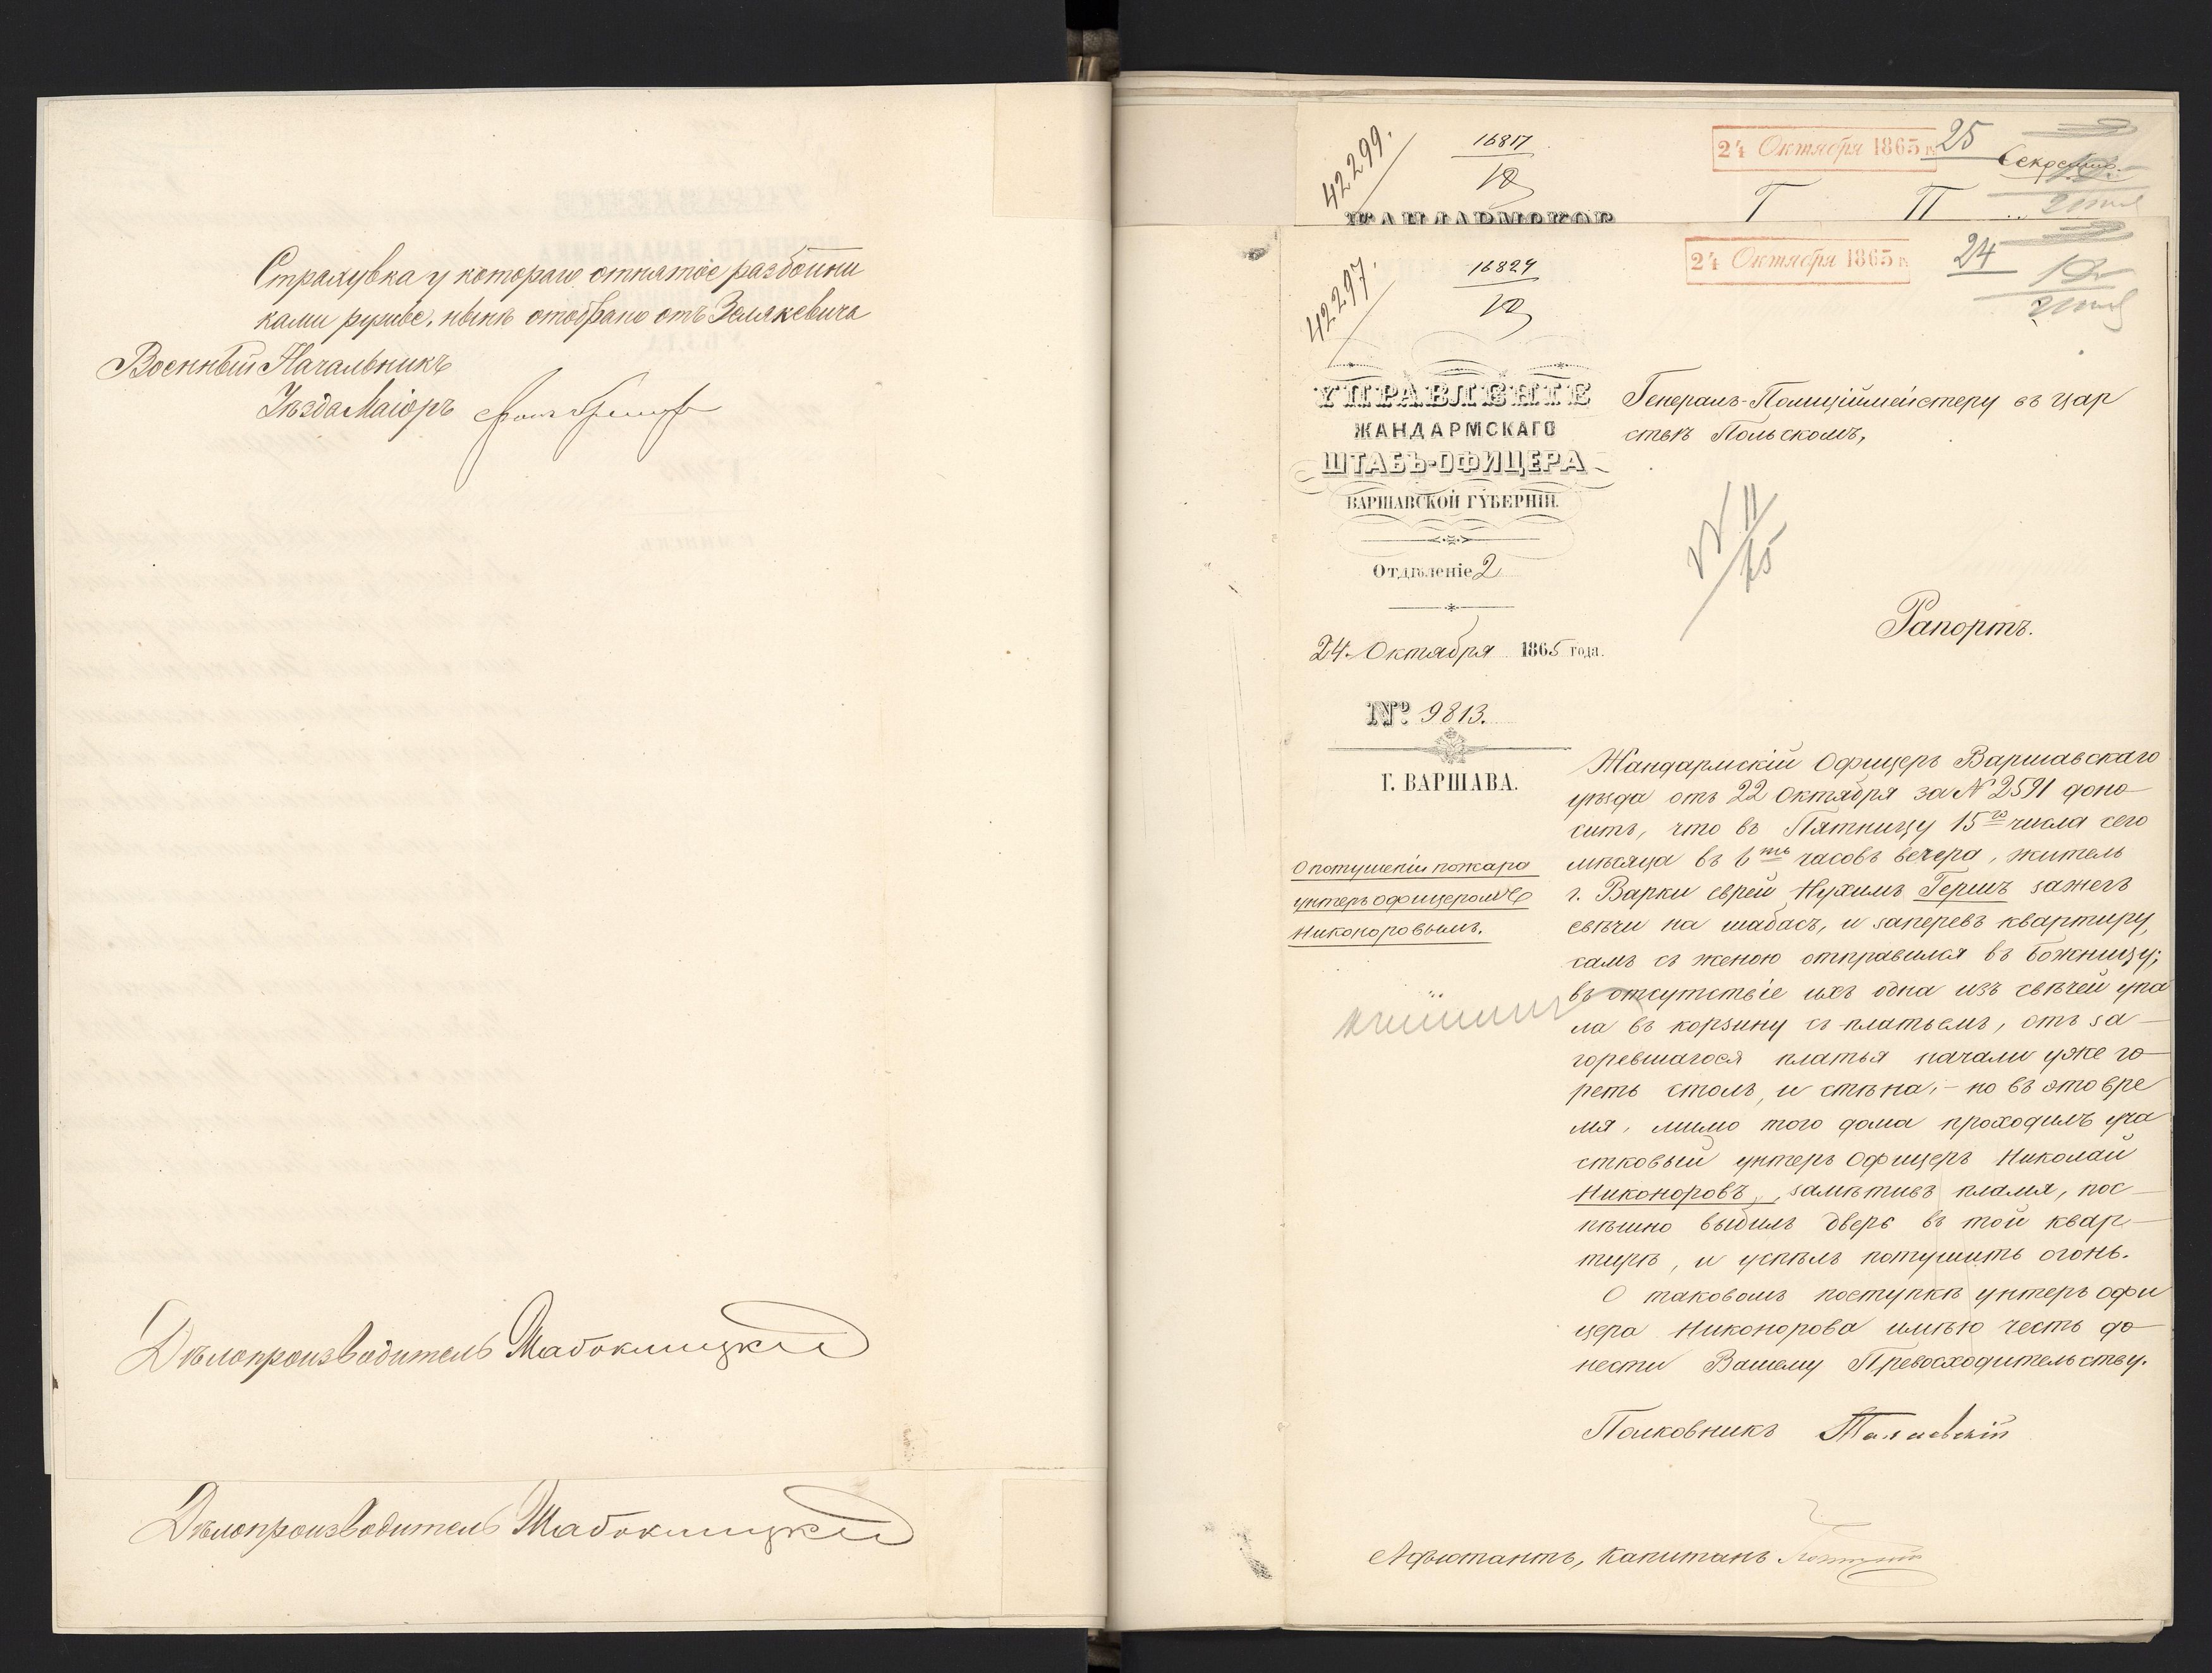 Страхувка у котораго отнятое разбойни
ками ружье, нынѣ отобрано отъ Зелякевича
Военный Начальникъ
Уѣзда Маіоръ
Дѣлопроизводитель
Дѣлопроизводитель
42299.
16817
24 Октября 1865 г.
25
Секретно.
ЖАНДАРМСКОЕ
Г П
42297.
16824
24 Октября 1865 г.
24
УПРАВЛЕНІЕ
ЖАНДАРМСКАГО
ШТАБЪ-ОФИЦЕРА
ВАРШАВСКОЙ ГУБЕРНІИ.
Отдѣленіе 2
24. Октября 1865 года.
№ 9813.
Г. ВАРШАВА.
О потушеніи пожара
унтеръ офицеромъ
Никоноровымъ.
Генералъ-Полиціймейстеру въ Цар
ствѣ Польскомъ,
Рапортъ.
Жандармскій Офицеръ Варшавскаго
уѣзда отъ 22 Октября за № 2591 доно
ситъ, что въ Пятницу 15го числа сего
мѣсяца въ 6ть часовъ вечера, житель
г. Варки еврей Нухимъ Гершъ зажегъ
свѣчи на шабасъ, и заперевъ квартиру,
самъ съ женою отправился въ Божницу;
въ отсутствіе ихъ одна изъ свѣчей упа
ла въ корзину съ платьемъ, отъ за-
горевшагося платья начали уже го-
реть столъ, и стѣна;- но въ это вре
мя, мимо того дома проходилъ уча
стковый унтеръ Офицеръ Николай
Никоноровъ, замѣтивъ пламя, пос-
пѣшно выбилъ дверь въ той квар-
тирѣ, и успѣлъ потушить огонь.
О таковомъ поступкѣ унтеръ офи
цера Никонорова имѣю честь до-
нести Вашему Превосходительству.
Полковникъ
Адъютантъ, Капитанъ